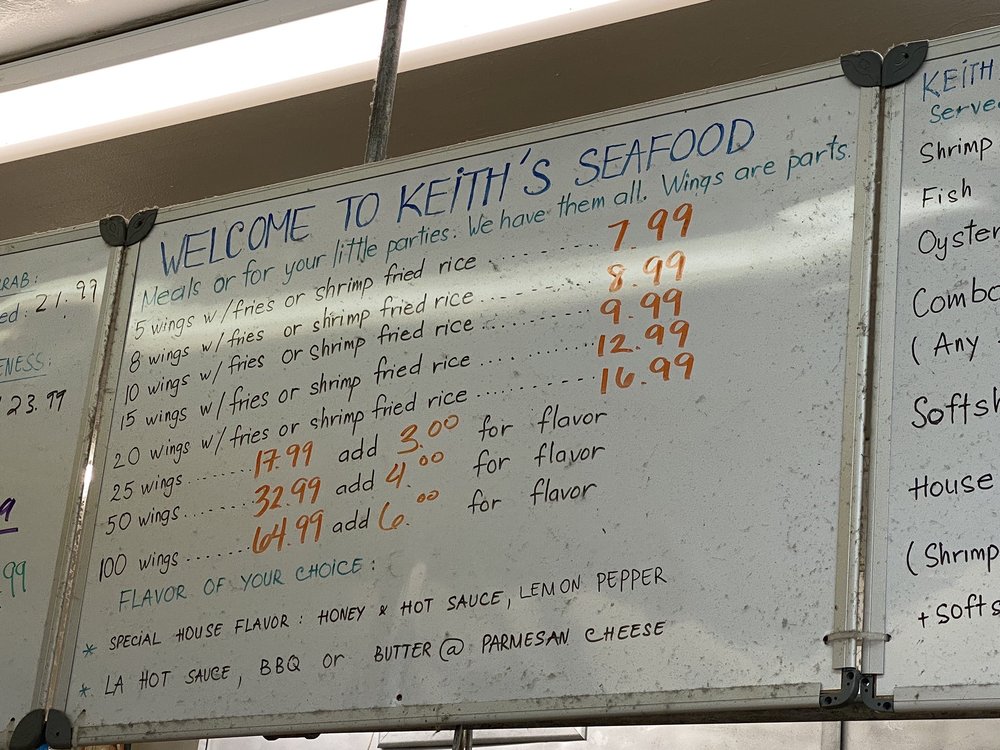 RAB:
ed: 21.99
ENESS:
23.99
9
99
WELCOME TO KEiTH'S SEAFOOD
Meals or for your little parties. We have them all. Wings are parts.
5 wings w/fries or shrimp fried rice ....... 7.99
8 wings w/fries or shrimp fried rice ........... 8.99
10 wings w/ fries or shrimp fried rice ............ 9.99
15 wings w/fries or shrimp fried rice ............ 12.99
20 wings w/fries or shrimp fried rice ............ 16.99
25 wings....... 17.99 add 3.00 for flavor
50 wings....... 32.99 add 4.00 for flavor
100 wings ....... 64.99 add 6.00 for flavor
FLAVOR OF YOUR CHOICE:
* SPECIAL HOUSE FLAVOR: HONEY & HOT SAUCE, LEMON PEPPER
* LA HOT SAUCE, BBQ or BUTTER @ PARMESAN CHEESE
KEiTH
Serve
Shrimp
Fish
Oyster
Combo
( Any
Softsh
House
(Shrimp
+ softs